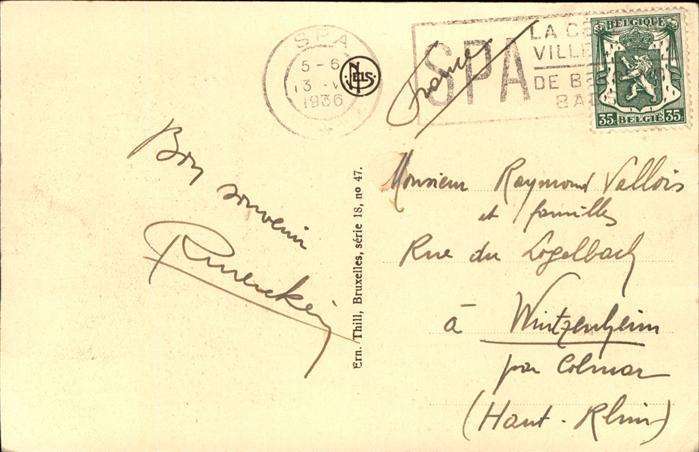 SPA
5-6
1936
NELS
SPA
LA
VILLE
DE
BA
BELGIQUE
35 BELGIË 35
France
Bon souvenir
Ern. Thill, Bruxelles, série 18, no 47.
Monsieur Raymond Vallois
et familles
Rue du Logelbach
à Wintzenheim
par Colmar
(Haut-Rhin)